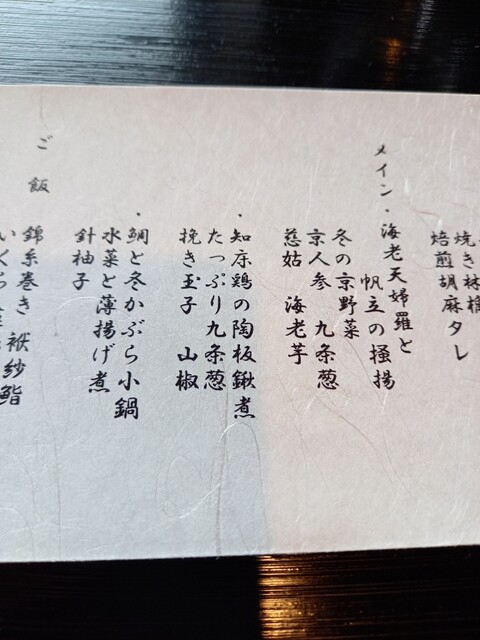 焼き林檎
焙煎胡麻タレ
メイン・海老天婦羅と
帆立の掻揚
冬の京野菜
京人参 九条葱
慈姑 海老芋
・知床鶏の陶板鍬煮
たっぷり九条葱
挽き玉子 山椒
・鯛と冬かぶら小鍋
水菜と薄揚げ煮
針柚子
ご飯
錦糸巻き 袱紗鮨
いくら